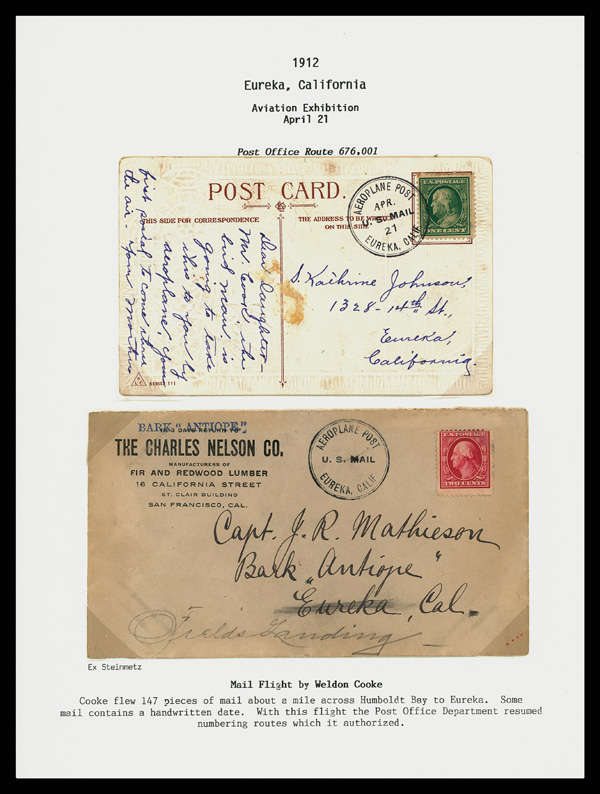 1912
Eureka, California
Aviation Exhibition
April 21
Post Office Route 676,001
POST CARD.
THIS SIDE FOR CORRESPONDENCE
THE ADDRESS TO BE WRITTEN
ON THIS SIDE
AEROPLANE POST
APR.
U. S. MAIL
21
EUREKA, CALIF
U.S. POSTAGE
ONE CENT
Dear Daughter—
Mr Cook, the
bird man, is
going to take
this to you by
aeroplane, your
first mail to come thru
the air. Your Mother
S. Kathrine Johnson,
1328-14th St.,
Eureka,
California.
SERIES 111
BARK "ANTIOPE"
DAYS RETURN TO
THE CHARLES NELSON CO.
MANUFACTURERS OF
FIR AND REDWOOD LUMBER
16 CALIFORNIA STREET
ST. CLAIR BUILDING
SAN FRANCISCO, CAL.
AEROPLANE POST
U. S. MAIL
EUREKA, CALIF
U.S. POSTAGE
TWO CENTS
Capt. J. R. Mathieson
Bark "Antiope"
Eureka, Cal.
Fields Landing
Ex Steinmetz
Mail Flight by Weldon Cooke
Cooke flew 147 pieces of mail about a mile across Humboldt Bay to Eureka. Some
mail contains a handwritten date. With this flight the Post Office Department resumed
numbering routes which it authorized.